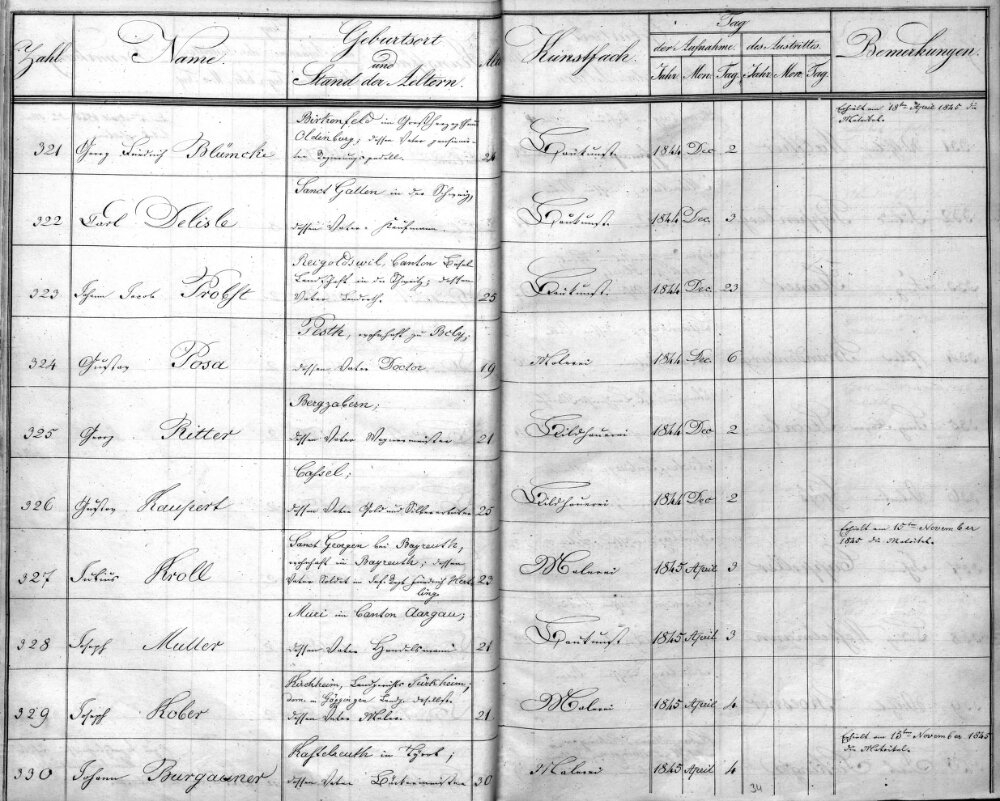 Zahl. Name. Geburtsort und Stand der Aeltern. Kunstfach. Tag der Aufnahme. des Austrittes. Bemerkungen.
Jahr Mon. Tag. Jahr Mon. Tag.
Erhielt am 18ten April 1845 die Matrikel.
321 Georg Friedrich Blümcke
Birkenfeld im Großherzogthum
Oldenburg; dessen Vater
24 Baukunst. 1844 Dec 2
322 Carl Delisle
Sanct Gallen in der Schweiz,
dessen Vater Kaufmann.
Baukunst. 1844 Dec. 3
323 Johann Jacob Probst
Reigoldswil, Canton Basel
Landschaft in der Schweitz; dessen
Vater Landrath.
25 Baukunst. 1844 Dec. 23
324 Gustav Posa
Pesth, wohnhaft zu Boly;
dessen Vater Doctor.
19 Malerei 1844 Dec. 6
325 Georg Ritter
Bergzabern;
dessen Vater Wagnermeister
21 Bildhauerei 1844 Dec 2
326 Gustav Kaupert
Cassel;
dessen Vater Gold und Silberarbeiter
25 Bildhauerei 1844 Dec 2
327 Julius Kroll
Sanct Georgen bei Bayreuth,
wohnhaft in Bayreuth; dessen
Vater Soldat im Inf. Regt. Friedrich Hertling.
23 Malerei 1845 April 3
Erhielt am 15ten November
1845 die Matrikel.
328 Joseph Muller
Muri im Canton Aargau;
dessen Vater Handelsmann
21 Baukunst 1845 April 3
329 Joseph Kober
Kirchheim, Landgerichts Türkheim,
dessen Vater Maler.
21 Malerei 1845 April 4
330 Johann Burgauner
Kastelruth in Tyrol;
dessen Vater
30 Malerei 1845 April 4
Erhielt am 15ten November 1845
die Matrikel.
34